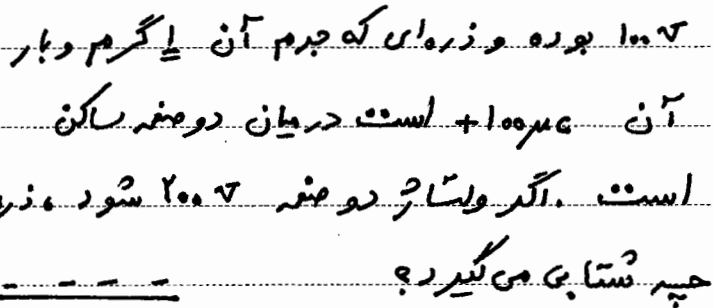 ۱۰۰ v بوده و ذره‌ای که جرم آن ۱ گرم و بار
آن +۱۰۰μc است در میان دو صفحه ساکن
است . اگر ولتاژ دو صفحه ۲۰۰ v شود ،
چه شتابی می گیرد؟